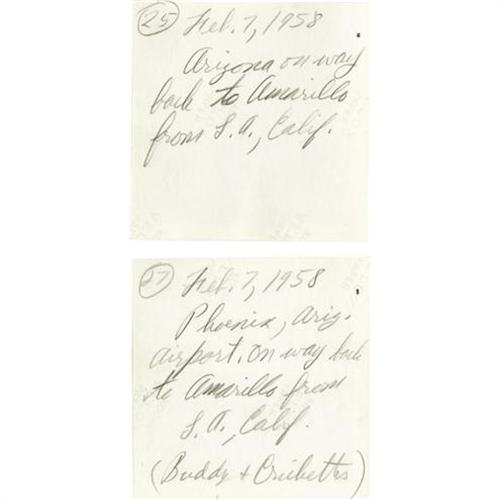 25 Feb. 7, 1958
Arizona on way
back to Amarillo
from L.A., Calif.
27 Feb. 7, 1958
Phoenix, Ariz.
airport. on way back
to Amarillo from
L.A., Calif.
(Buddy + Cricketts)